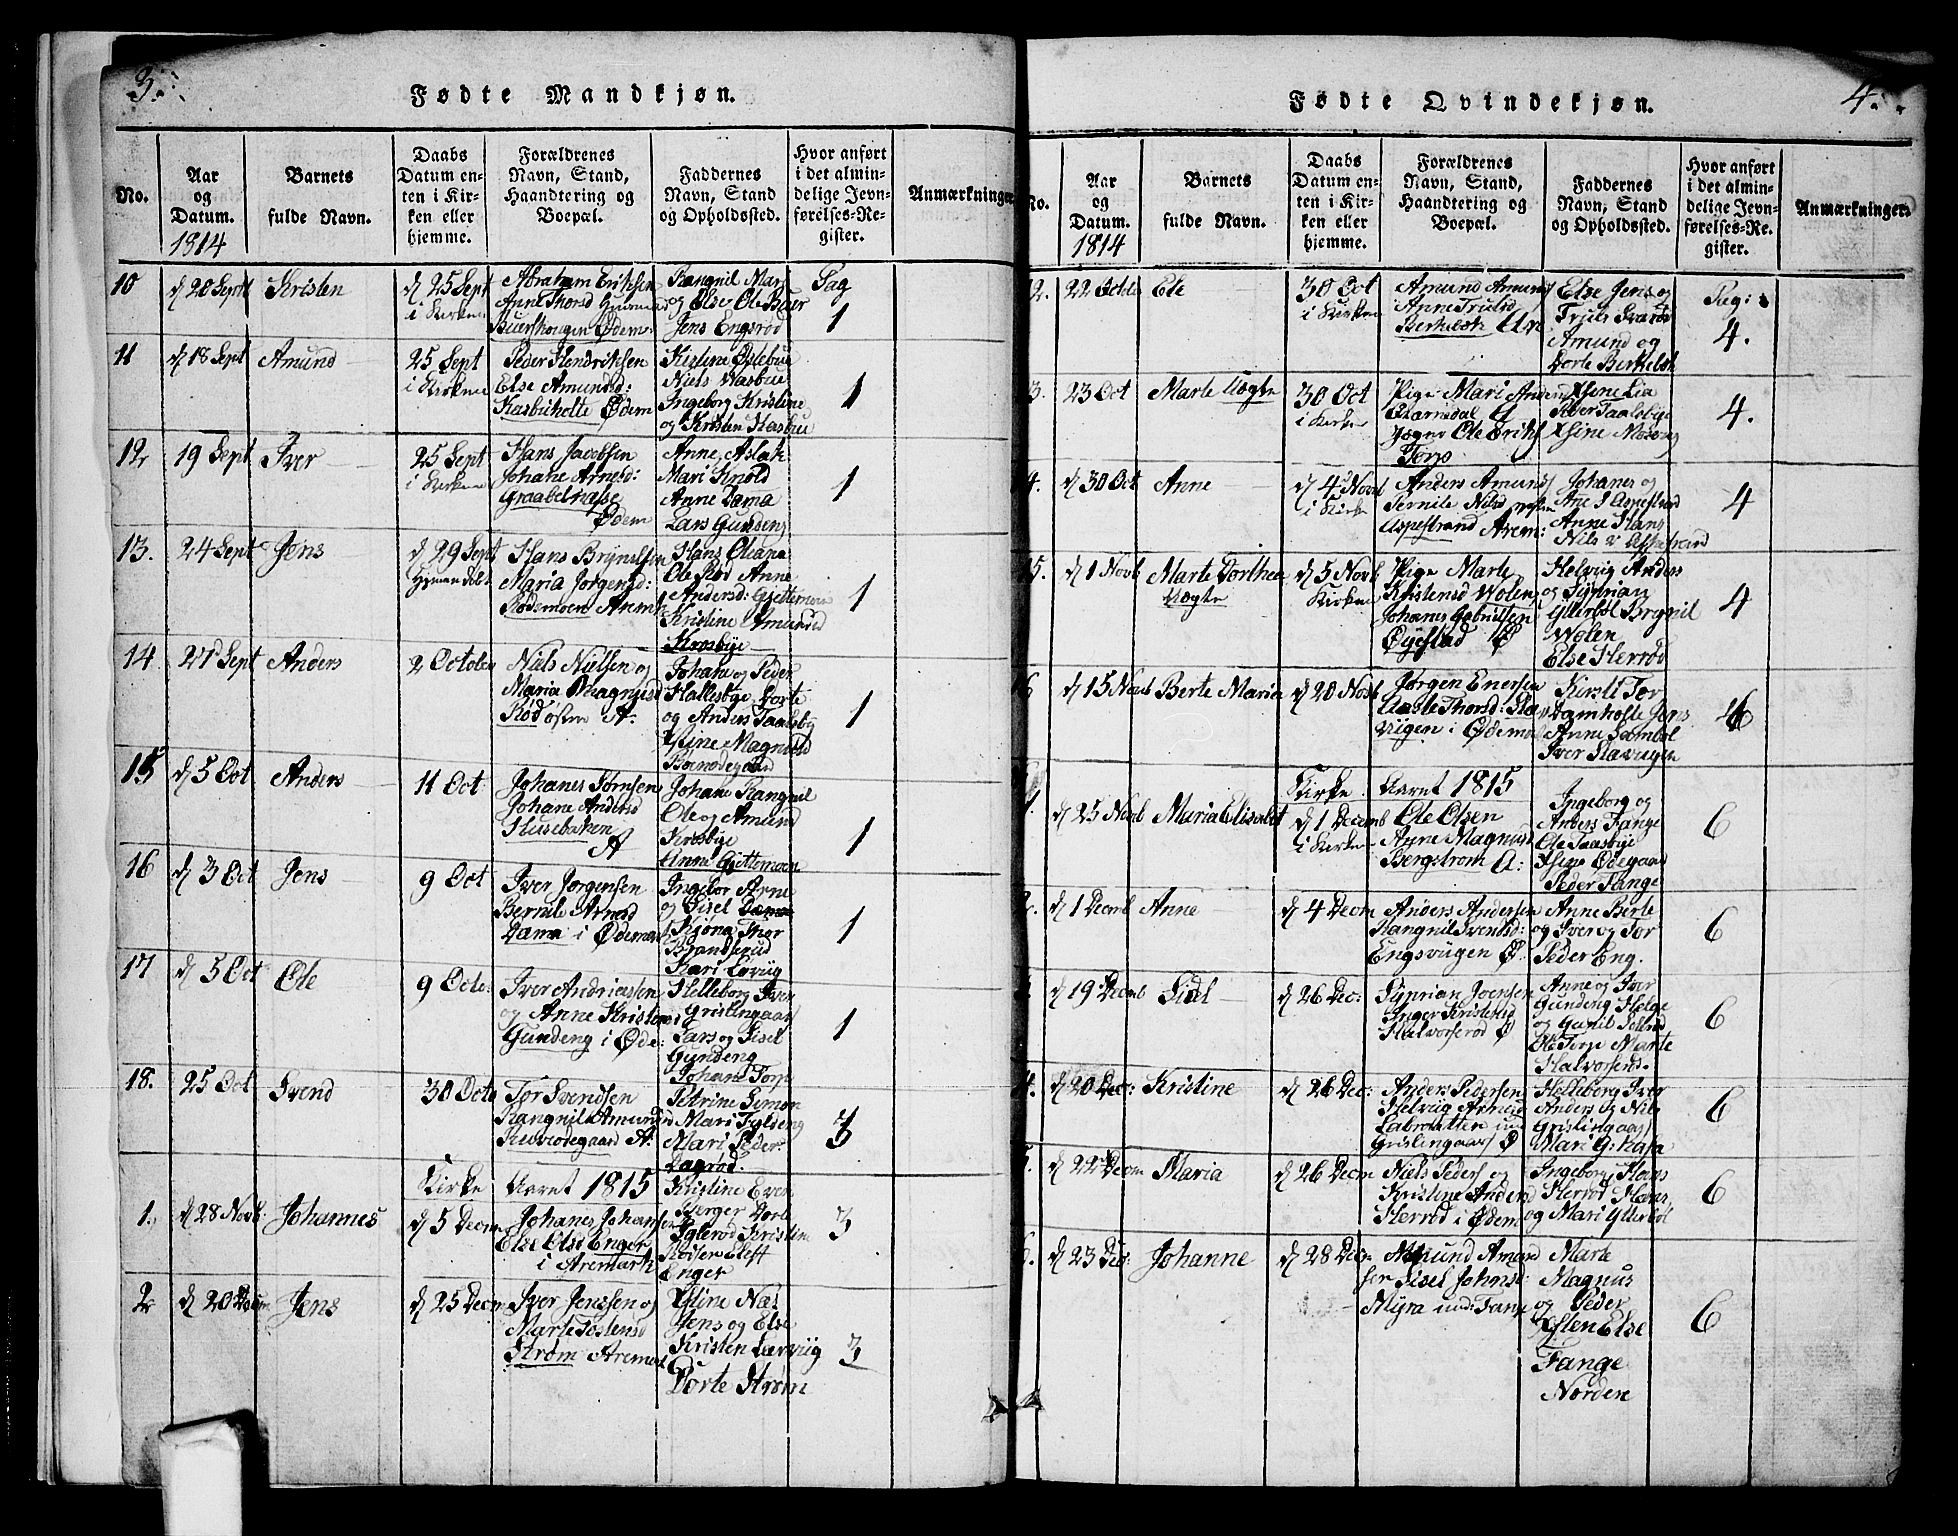 3.
Fødte Mandkjøn.
No.
Aar
og
Datum.
1814
Barnets
fulde Navn.
Daabs
Datum en-
ten i Kir-
ken eller
hjemme.
Forældrenes
Navn, Stand,
Haandtering og
Boepæl.
Faddernes
Navn, Stand
og Opholdssted.
Hvor anført
i det almin-
delige Jevn-
førelses-Re-
gister.
Anmærkninger
10
d 20 Sept
Kristen
d 25 Sept
i Kirken
Abraham Eriksen
Anne Thorsd
Buershougen Ødem:
Rangnil Mar
og Else Ole Buer
Jens Engsrød
Pag
1
11
d 18 Sept
Amund
25 Sept
i Kirken
Peder Hendriksen
Else Amundsd:
Kasbukolte Ødem
Kistine Østebue
Niels Wasbue
Ingeborg Kristine
og Kristen Kasbue
1
12
19 Sept
Iver
25 Sept
i Kirken
Hans Jacobsen
Johane Arnesd:
Graabelnesse
Ødem
Anne Aslak
Mari Knold
Anne Dæma
Lars Gundeng
1
13.
24 Sept
Jens
d 29 Sept
Hans Brynelsen
Maria Jørgensd:
Rødemoen Aremk
Hans Oleana
Ole Rød Anne
Andersd: Gjettemoen
Kristine Amunsd
Krosbye
1
14
27 Sept
Anders
2 October
Niels Nielsen og
Maria Magnusd
Rød østre A.
Johane og Peder
Hallesbye Dorte
og Anders Taalsby
Kstine Magnus
Boenødegaard
1
15
d 5 Oct
Anders
11 Oct
Johanes Tørnsen
Johane Andersd
Husebaken
A
Johane Rangnil
Ole og Amund
Krosbye
Anne Gjettemoen
1
16
d 3 Oct
Jens
9 Oct
Iver Jørgensen
Bernile Arnesd
Dæma i Ødemark
Ingebor Arne
og Sisel Dæma
Kjøna Thor
Brandsrud
Kari Lervig
1
17
d 5 Oct
Ole
9 Octo:
Iver Andriassen
og Anne Kristensd
Gundeng i Øde:
Helleborg Iver
Gristingaas
Lars og Sisel
Gundeng
Johans Torp
1
18.
25 Oct
Svend
30 Octo
Tor Svendsen
Rangnil Amunds
A:
Petrine Simon
Mari Fyldeng
Mari Peder
Lagrød.
3
Kirke
Aaret 1815
1.
d 28 Novb:
Johannes
d 5 Decm
Johanes Johansen
Else Olsd Enger
i Aremark
Kristine Even
Berger Dorte
Iglerød Kristine
Røsten Eleff
Enger
3
2
d 20 Decm
Jens
d 25 Decm
Iver Jenssen og
Marte Tostensd
Strøm Aremark
Kstine Næs
Jens og Else
Kristen Lærviig
Dorte Strøm
3
4.
Fødte Qvindekjøn.
No.
Aar
og
Datum.
1814
Barnets
fulde Navn.
Daabs
Datum en-
ten i Kir-
ken eller
hjemme.
Forældrenes
Navn, Stand,
Haandtering og
Boepæl.
Faddernes
Navn, Stand
og Opholdssted.
Hvor anført
i det almin-
delige Jevn-
førelses-Re-
gister.
Anmærkninger.
2.
22 Octo
Ele
30 Oct
i Kirken
Amund Amunds
Anne Trulsd
Berkelsk Ar
Else Jens og
Truls Svarød
Amund og
Dorte Berkelsk
Pag:
4.
3.
23 Oct
Marte Uægte
30 Oct
i Kirke
Pige Mari Andersd
Ole Eriks
Torp
Kstine Lia
Iver Taalsbye
Kstine Moseng
4.
4.
d 30 Oct
Anne
d 4 Novb
i Kirke
Anders Amunds
Pernile Nilsd
Aspestrand Arem:
Johanes og
Ane I Aspestrand
Anne Hans
Nils v Aspestrand
4
5.
d 1 Novb
Marte Dorthea
Uægte
d 5 Novb
Kirken
Pige Marte
Kristensd Wolen
Johanes Gabrielsen
Øyestad Ø
Helvig Anders
og Siprian
Ytterbøl Brynil
Wolen
Else Herrød
4
6
d 15 Novb
Berte Maria
d 20 Novb
Jørgen Enersen
Thorsd: Sta
viigen i Ødem
Kirsti Tor
Damholte Jens
Anne Sambøl
Iver Stavvigen
4
Kirke
Aaret 1815
1.
d 25 Novb
Maria Elisabet
d 1 Decmb
i Kirken
Ole Olsen
Anne Magnusd
Bergstrøm A:
Ingeborg og
Anders Fange
Ole Taasbye
Kstine Ødegaard
Peder Fange
6
2.
d 1 Decmb
Anne
d 4 Decm
Anders Andersen
Rangnil Svendsd:
Engsviigen Ø
Anne Berte
og Iver og Tor
Peder Eng.
6
3.
d 19 Decmb
Sidsl
d 26 Dec:
Siprian Joensen
Inger Kristensd
Halvorsrød Ø
Anne og Iver
Gundeng Helge
og Gunil Sollid
Ole Torp Marte
Halvorsrud.
6
4.
d 20 Dec:
Kristine
d 26 Dec:
Anders Pedersen
Helviig Arnesd
Labraatten und
Gristingaas Ø
Helleborg Iver
Anders og Nils
Gristingaas
Mari G: Kasa
6
5.
d 22 Decm
Maria
d 26 Decm
Niels Peders og
Kristine Andersd
Herrød i Ødem
Ingeborg Hans
Herrød Hans
og Mari Ytterbøl
6
6.
d 23 Dec:
Johanne
d 28 Dec:
Amund Amund
sen Sisel Johnsd:
Myra und: Fange
Marte
Magnus
og Peder
Kisten Else
Fange
Nordre
6